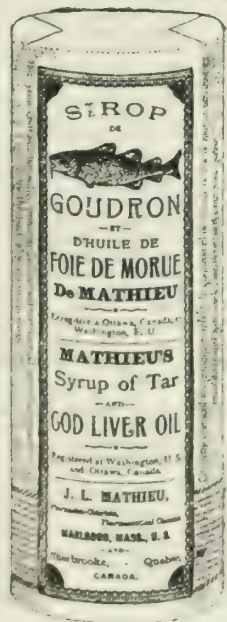 SIROP
DE
GOUDRON
—ET—
D'HUILE DE
FOIE DE MORUE
De MATHIEU
Enregistré à Ottawa, Canada, et
Washington, E. U.
MATHIEU'S
Syrup of Tar
—AND—
COD LIVER OIL
Registered at Washington, U. S.
and Ottawa, Canada.
J. L. MATHIEU,
Pharmaceutical Chemist
MARLBORO, MASS., U. S.
—AND—
Sherbrooke, Quebec
CANADA.